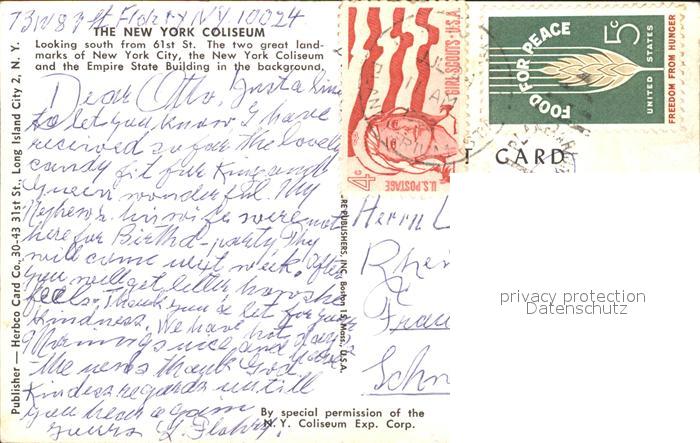 73 W 87 St. NY. 10024
THE NEW YORK COLISEUM
Looking south from 61st St. The two great land-
marks of New York City, the New York Coliseum
and the Empire State Building in the background.
Dear Otto, Just a line
to let you know I have
received so far the lovely
candy fit for King and
Queen wonderful. My
Nephew his wife were not
here for Birthd-party They
will come next week. After
you will get letter how she
feels. Thank you a lot for your
kindness. We have hot days
Mornings nice and
the news thank God
Kindest regards untill
you hear again
Yours
Publisher — Herbco Card Co., 30-43 31st St., Long Island City 2, N. Y.
By special permission of the
N. Y. Coliseum Exp. Corp.
RE PUBLISHERS, INC. Boston 15, Mass., U.S.A.
GIRL SCOUTS · U.S.A.
4¢ U.S. POSTAGE
FOOD FOR PEACE
5¢
UNITED STATES
FREEDOM FROM HUNGER
T CARD
Herrn L
Frau
Schn
privacy protection
Datenschutz